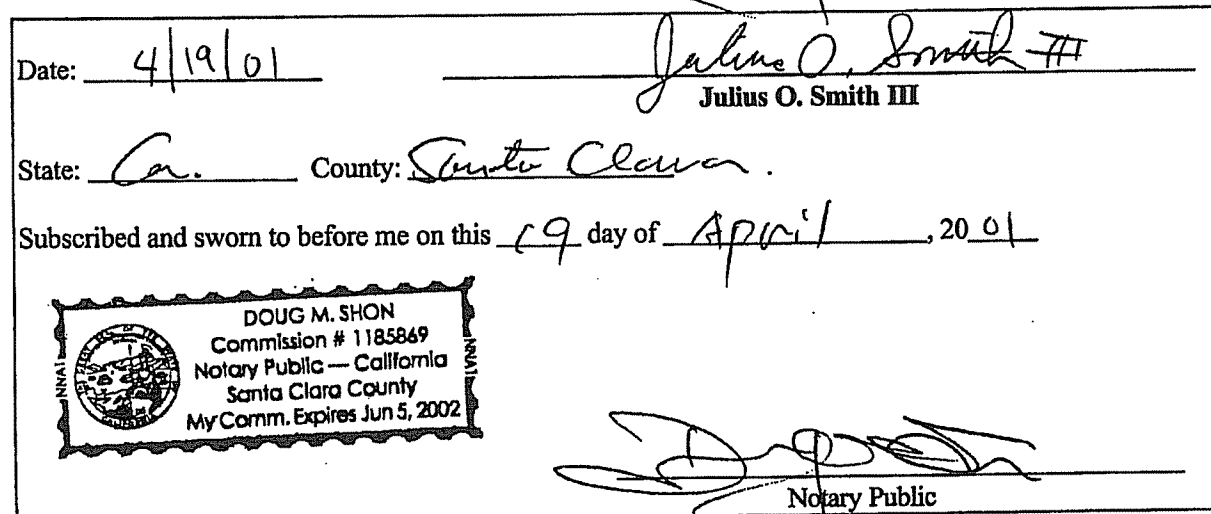 Date: 4/19/01 Julius O. Smith III
Julius O. Smith III
State: Ca. County: Santa Clara.
Subscribed and sworn to before me on this 19 day of April, 2001
DOUG M. SHON
Commission # 1185869
Notary Public — California
Santa Clara County
My Comm. Expires Jun 5, 2002
NNA1
NNA1
Notary Public